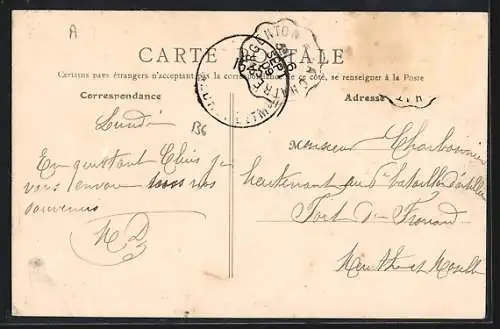 A
CARTE POSTALE
Certains pays étrangers n'acceptant pas la correspondance de ce côté, se renseigner à la Poste
Correspondance
Adresse
Lundi
B6
En quittant Cluis je
vous envoie tous nos
souvenirs
Monsieur Charbonnier
lieutenant au 6e bataillon d'artillerie
Fort de Frouard
Meurthe et Moselle